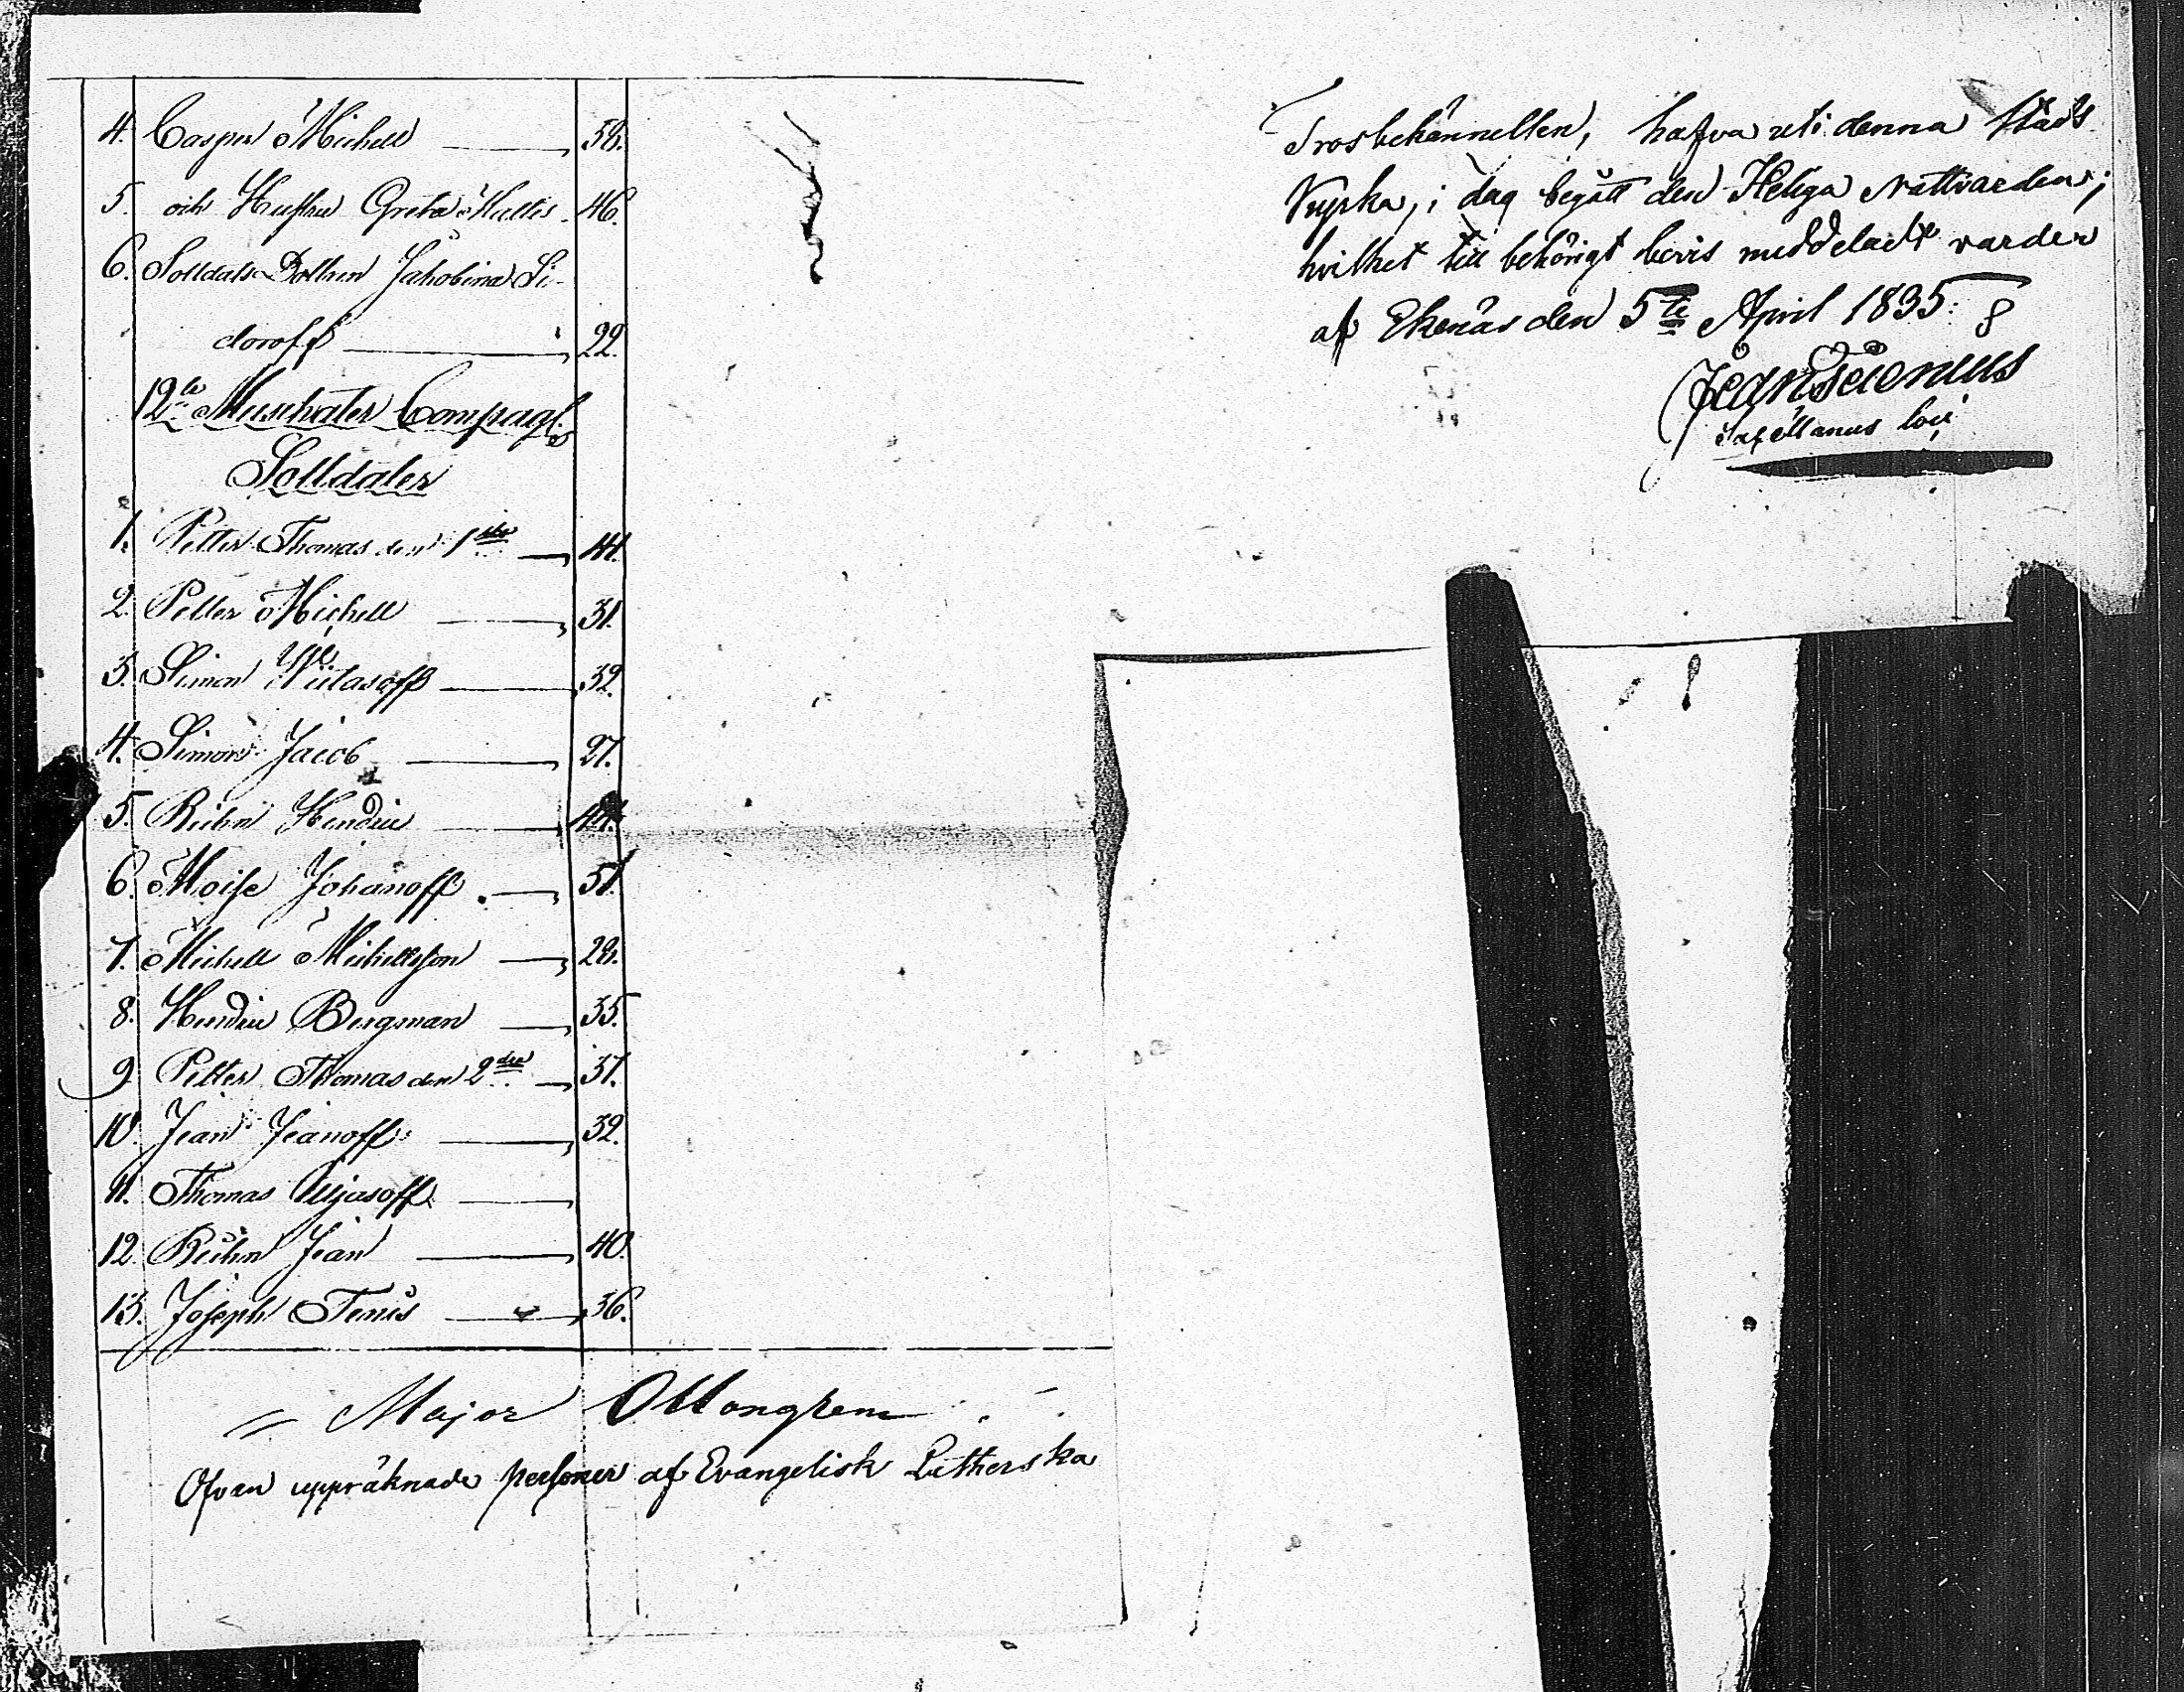 4. Casper Michell 58.
5. och Hustru Greta Mattes 46.
6. Solldats Dottren Jakobina Si-
doroff 22.
12te Musqueter Compag:
Solldater
1. Petter Thomas den 1ste 44.
2. Petter Michell 31.
3. Simon 32.
4. Simon Jacob 27.
5. Hendric 44.
6. Moise Johanoff 51.
7. Michell Michellson 28.
8. Hendric Bergman 35.
9. Petter Thomas den 2dre 37.
10. Jean Jeanoff 32.
11. Thomas
12. Jean 40.
13. Joseph Tenis 36.
Major
Ofvan uppräknade personer af Evangelisk Lutherska
Trosbekännellen, hafva uti denna Stads
Kyrka, i dag begått den Heliga Nattvarden;
hvilket till behörigt bevis meddeladt varder
af Ekenäs den 5te April 1835.
Capellanus loci